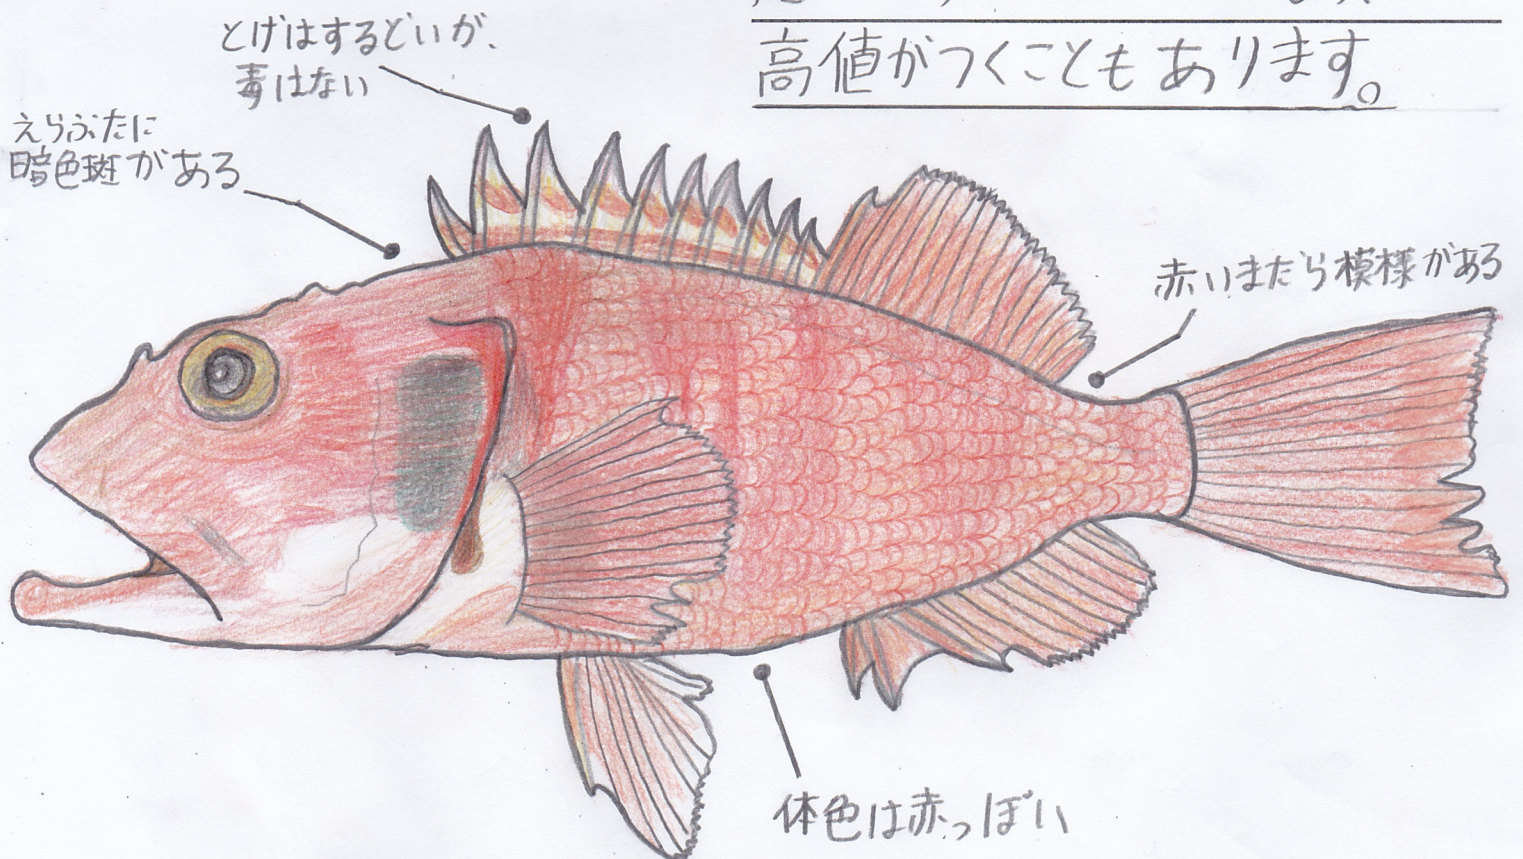 高値がつくこともあります。
とげはするどいが、
毒はない
えらぶたに
暗色斑がある
赤いまだら模様がある
体色は赤っぽい